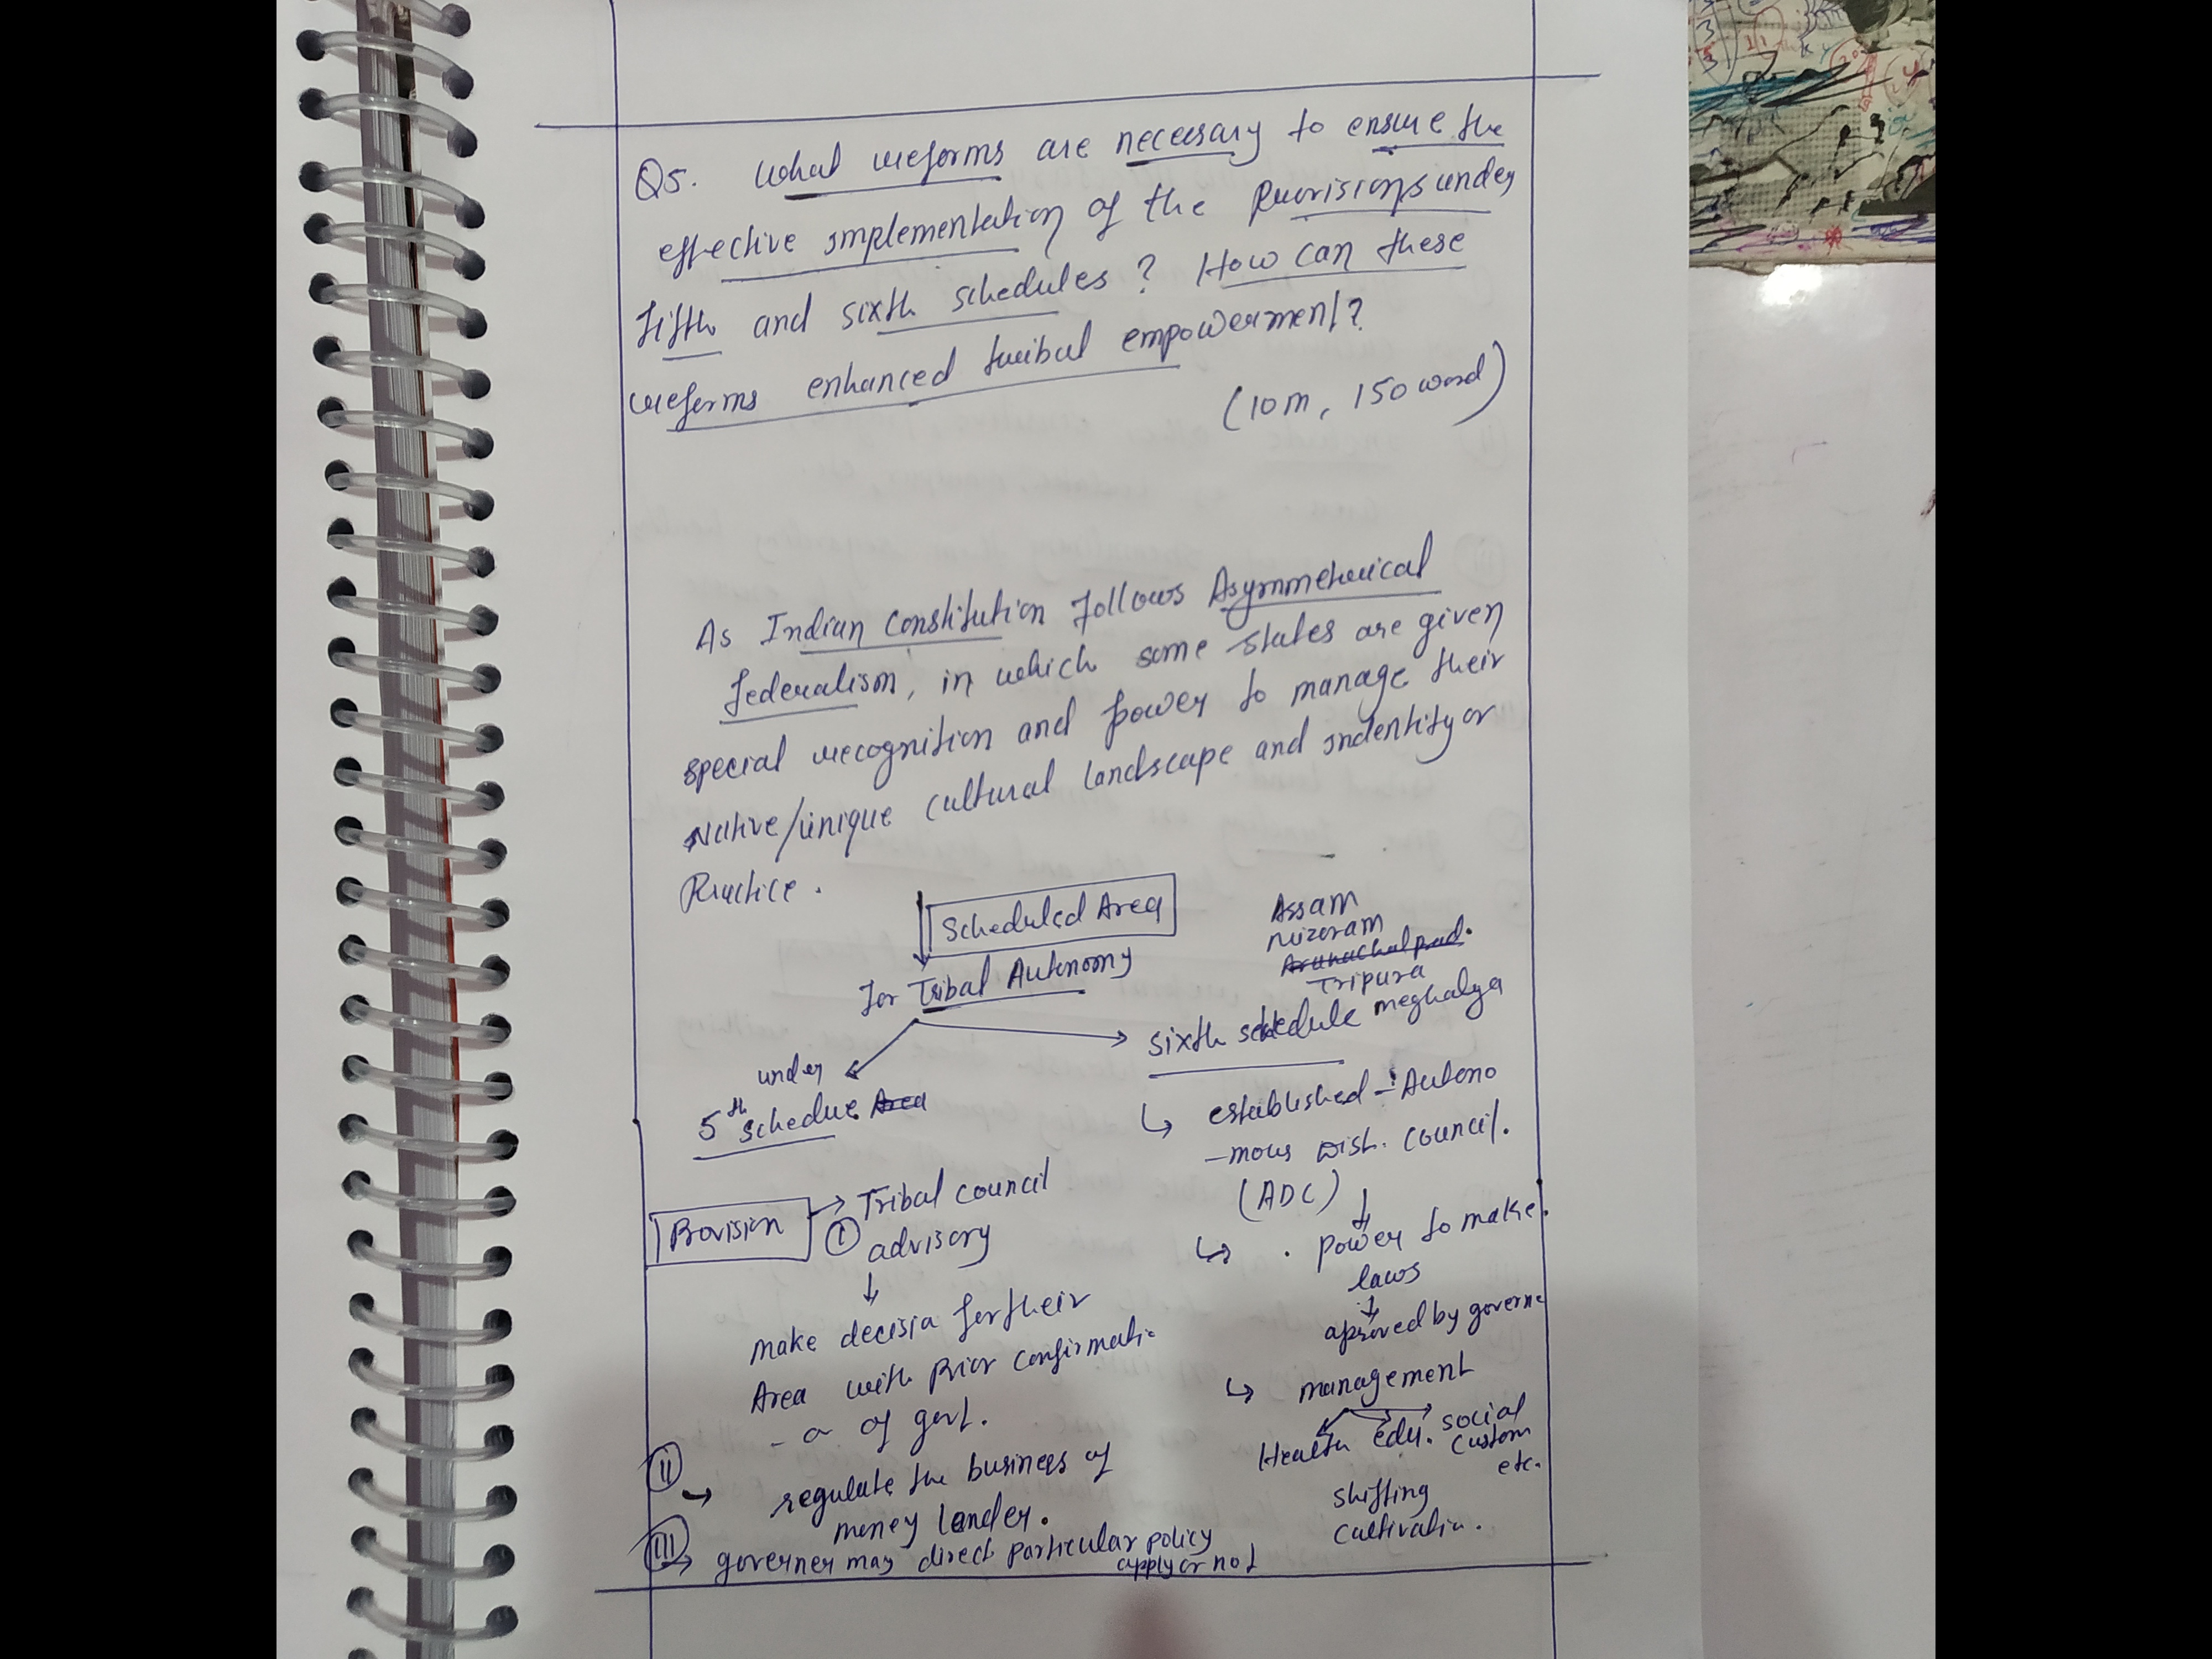 Q5. What reforms are necessary to ensure the
effective implementation of the provisions under
fifth and sixth schedules? How can these
reforms enhanced tribal empowerment?
(10m, 150 word)
As Indian Constitution follows Asymmetrical
federalism, in which some states are given
special recognition and power to manage their
Native/unique cultural landscape and indentity or
Practice.
Scheduled Area
for Tribal Autonomy
Assam
Mizoram
Arunachal prad.
Tripura
meghalya
sixth schedule
under
5th schedue Area
established - Autono
-mous Dist. Council.
(ADC)
Provision
Tribal council
(I) advisory
power to make
laws
aproved by governe
make decisin for their
Area with prior confirmati
-on of govt.
management
Health edu. social
custom
etc.
shifting
cultivatin.
(II) regulate the business of
money lender.
(III) governer may direct particular policy
apply or not